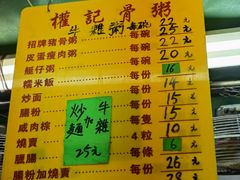 權記骨粥
牛雜粥 每碗 22元
招牌豬骨粥 每碗 25元
皮蛋瘦肉粥 每碗 22元
艇仔粥 每碗 20元
糯米飯 每碗 16元
炒面 每份 14元
腸粉 每份 15元
咸肉粽 每隻 15元
燒賣 4粒 10元
腸 每條 6元
腸粉加燒賣 每份 26元
28元
炒麵加牛雜
25元